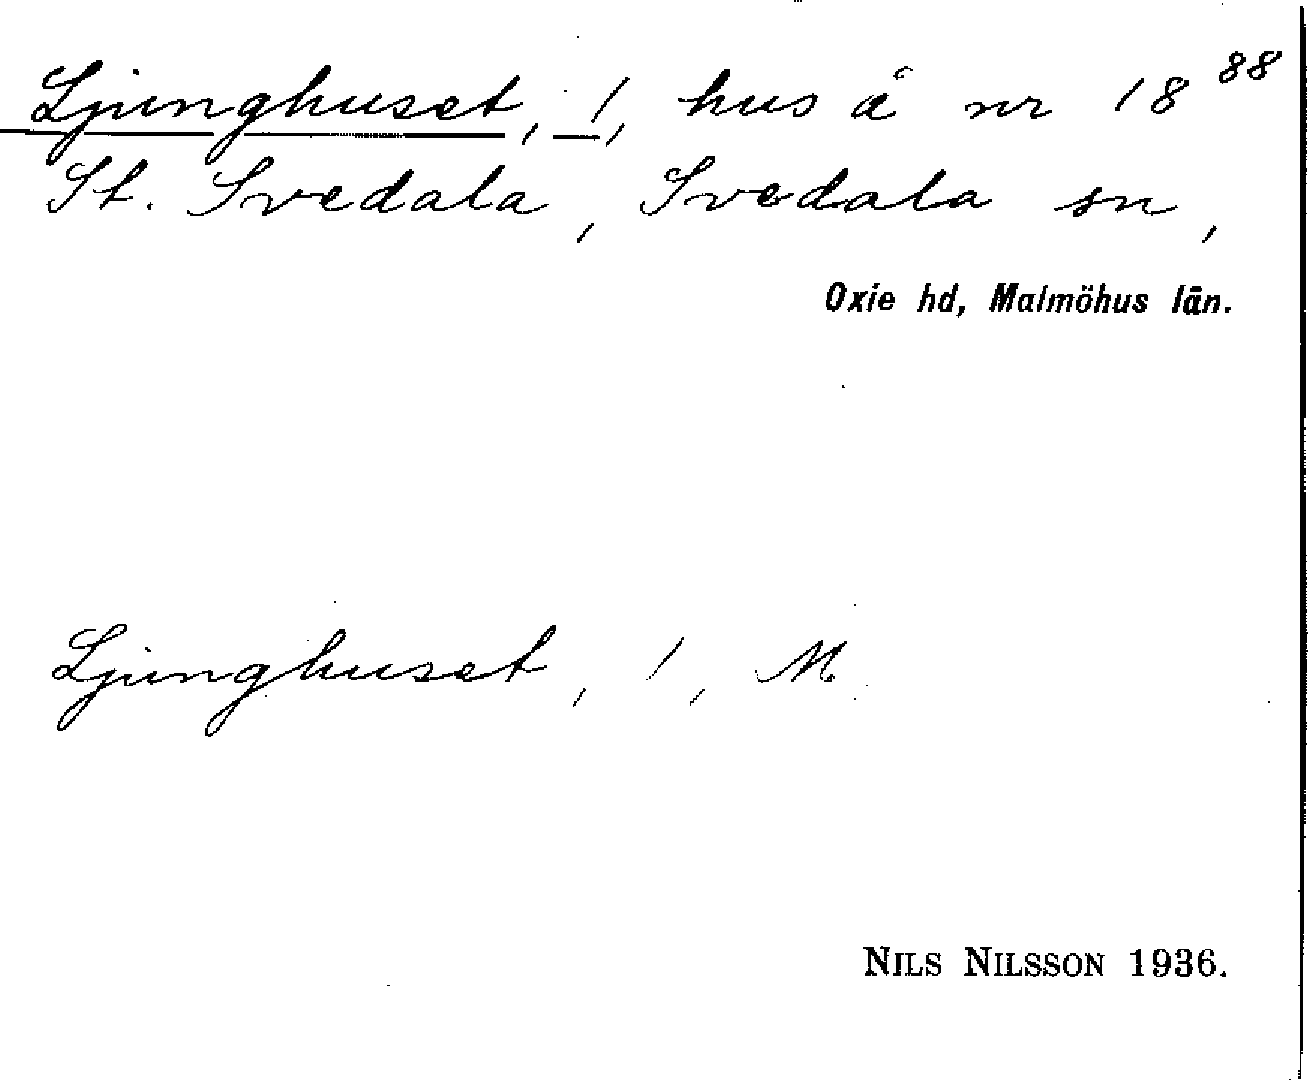 Ljunghuset, /, hus å nr 18 88
St. Svedala, Svedala sn,
Oxie hd, Malmöhus län.
Ljunghuset, /, M
NILS NILSSON 1936.